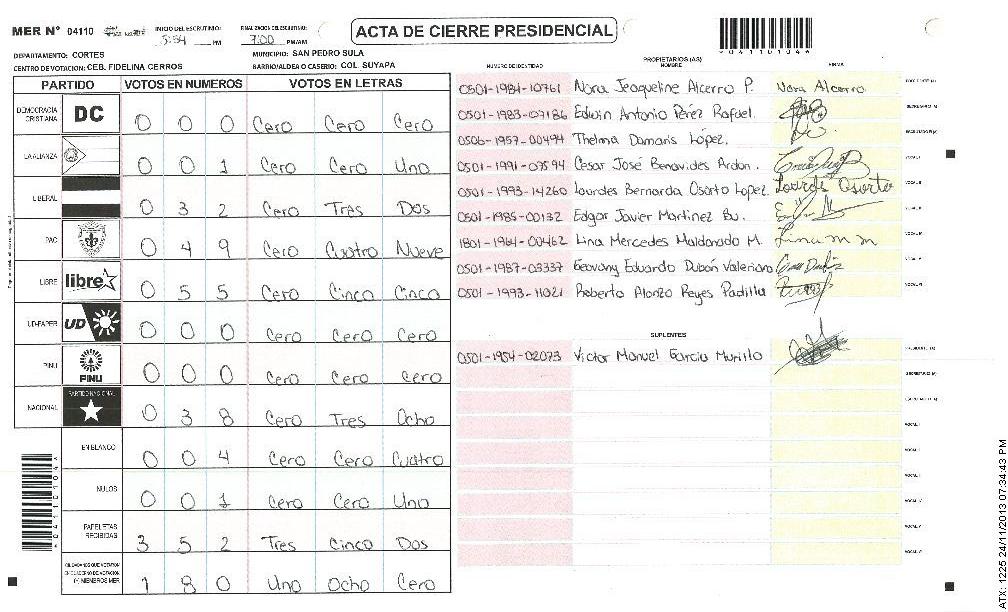 MER Nº 04110
INICIO DEL ESCRUTINIO:
5:54 PM
FINALIZACION DEL ESCRUTINIO:
7:00 PM/AM
ACTA DE CIERRE PRESIDENCIAL
*04110104*
DEPARTAMENTO: CORTES
MUNICIPIO: SAN PEDRO SULA
CENTRO DE VOTACION: CEB. FIDELINA CERROS
BARRIO/ALDEA O CASERIO: COL. SUYAPA
PARTIDO VOTOS EN NUMEROS VOTOS EN LETRAS
DEMOCRACIA CRISTIANA DC 0 0 0 Cero Cero Cero
LA ALIANZA 0 0 1 Cero Cero Uno
LIBERAL 0 3 2 Cero Tres Dos
PAC 0 4 9 Cero Cuatro Nueve
LIBRE libre 0 5 5 Cero Cinco Cinco
UD-FAPER UD 0 0 0 Cero Cero Cero
PINU PINU 0 0 0 Cero Cero Cero
NACIONAL PARTIDO NACIONAL 0 3 8 Cero Tres Ocho
EN BLANCO 0 0 4 Cero Cero Cuatro
NULOS 0 0 1 Cero Cero Uno
PAPELETAS RECIBIDAS 3 5 2 Tres Cinco Dos
CIUDADANOS QUE VOTARON EN CUADERNO DE VOTACION (+) MIEMBROS MER 1 8 0 Uno Ocho Cero
PROPIETARIOS (AS)
NUMERO DE IDENTIDAD NOMBRE FIRMA
0501-1984-10761 Nora Jeaqueline Alcerro P. Nora Alcerro
0501-1983-07186 Edwin Antonio Pérez Rafael.
0506-1957-00494 Thelma Damaris López.
0501-1991-07594 César José Benavides Ardon.
0501-1993-14260 Lourdes Bernarda Osorto Lopez. Lourde Osorto
0501-1985-00132 Edgar Javier Martinez Bu.
1801-1964-00462 Lina Mercedes Maldonado M. Lina m m
0501-1987-03337 Geovany Eduardo Dubón Valeriano
0501-1993-11021 Roberto Alonzo Reyes Padilla
SUPLENTES
0501-1954-02073 Victor Manuel Garcia Murillo
PRESIDENTE (A)
SECRETARIO (A)
ESCRUTADOR (A)
VOCAL I
ATX: 1225 24/11/2013 07:34:43 PM